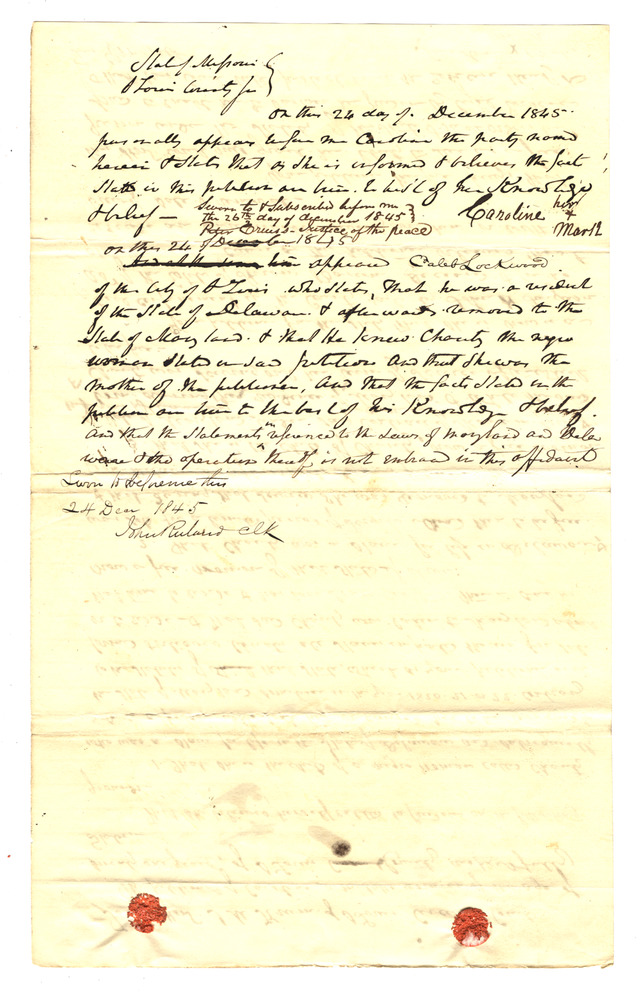 State of Missouri
St Louis County ss
On this 24 day of December 1845
personally appears before me Caroline the party named
herein & states that as she is informed & believes the facts
Stated in this petition are true to best of her Knowledge
& belief —
Sworn to & Subscribed before me
the 26th day of december 1845
Peter Justice of the peace
Caroline her
+
Mark
on this 24 of December 1845
appeared Caleb Lockwood
of the City of St Louis who states, that he was a resident
of the State of Delaware & afterwards removed to the
State of Maryland & that He Knew Charity the negro
woman stated in said petition and that She was the
mother of the petitioner, And that the facts Stated in the
petition are true to the best of his Knowledge & belief.
And that the Statements in reference to the Laws of Maryland and Dela
ware & the operation thereof is not embraced in this affidavit
Sworn to before me this
24 Decr 1845
John Ruland Clk